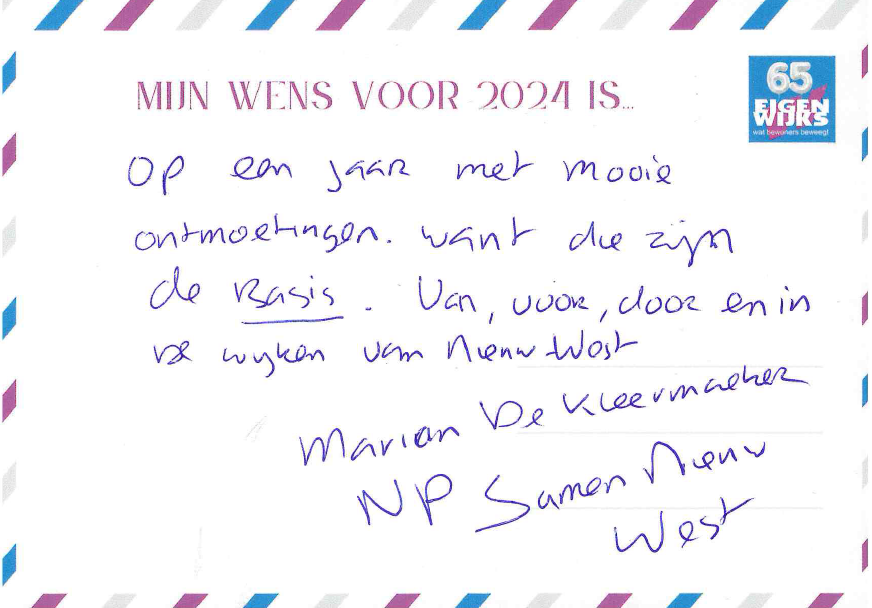 MIJN WENS VOOR 2024 IS...
65
EIGEN
WIJKS
wat bewoners beweegt
Op een jaar met mooie
ontmoetingen. want die zijn
de Basis. Van, voor, door en in
de wijken van Nieuw-West
Marian De Kleermaeker
NP Samen Nieuw
West